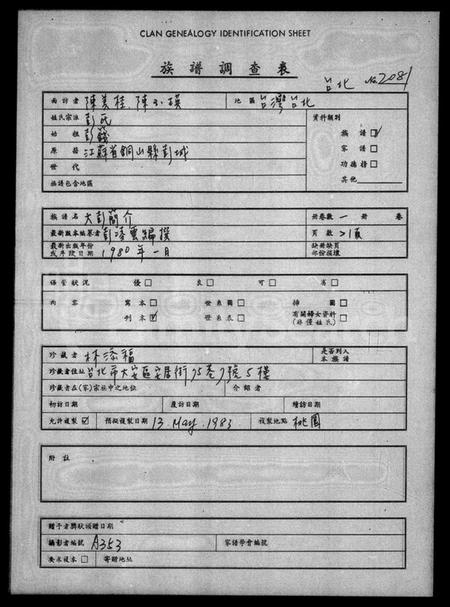 CLAN GENEALOGY IDENTIFICATION SHEET
族譜調查表
台北 No 2081
面訪者 陳美桂、陳小瑛 地區 台灣台北
姓氏宗派 彭氏 資料類別
始祖 彭籛 族譜 ☑
原籍 江蘇省銅山縣彭城 家譜 □
世代 功德榜 □
族譜包含地區 其他
族譜名 大彭簡介 冊卷數 一 冊 卷
最新版本編纂者 彭凌雲編撰 頁數 >1頁
最新出版年份或手院日期 1980年一月 缺冊缺頁部份損壞
保管狀況 優□ 良□ 可□ 劣□
內容 寫本□ 世系圖□ 排圖□
刊本☑ 世系表□ 有關婦女資料(非僅姓氏)□
珍藏者 林添福 是否列入本族譜
珍藏者住址 台北市大安區安居街75巷7號5樓
珍藏者在(家)宗族中之地位 介紹者
初訪日期 覆訪日期 續訪日期
允許複製 ☑ 預擬複製日期 13 May 1983 複製地點 桃園
附註
贈予者獎狀頒贈日期
攝影者編號 A353 家譜學會編號
要求複本□ 寄贈地址